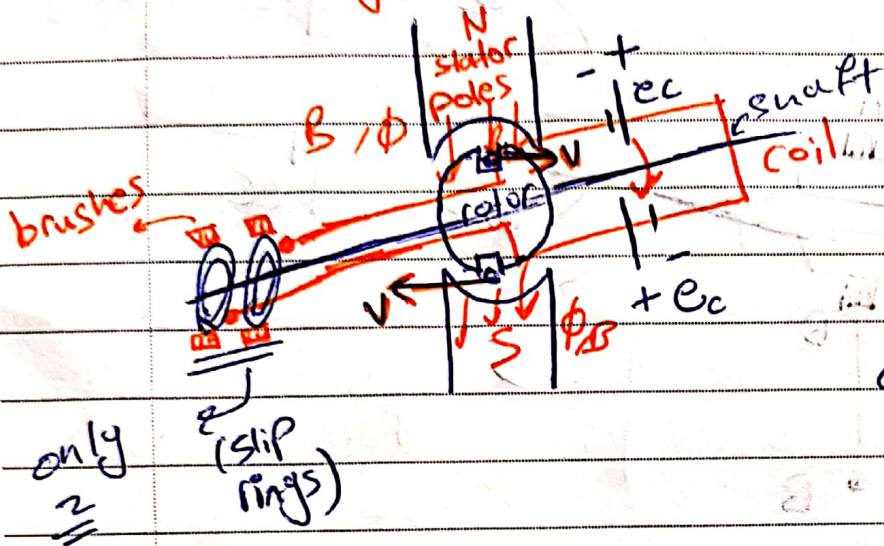 N
stator
poles
B, Φ
- +
ec
shaft
coil
V
rotor
brushes
V
S
Φ,B
-
+ ec
only
2
(slip
rings)